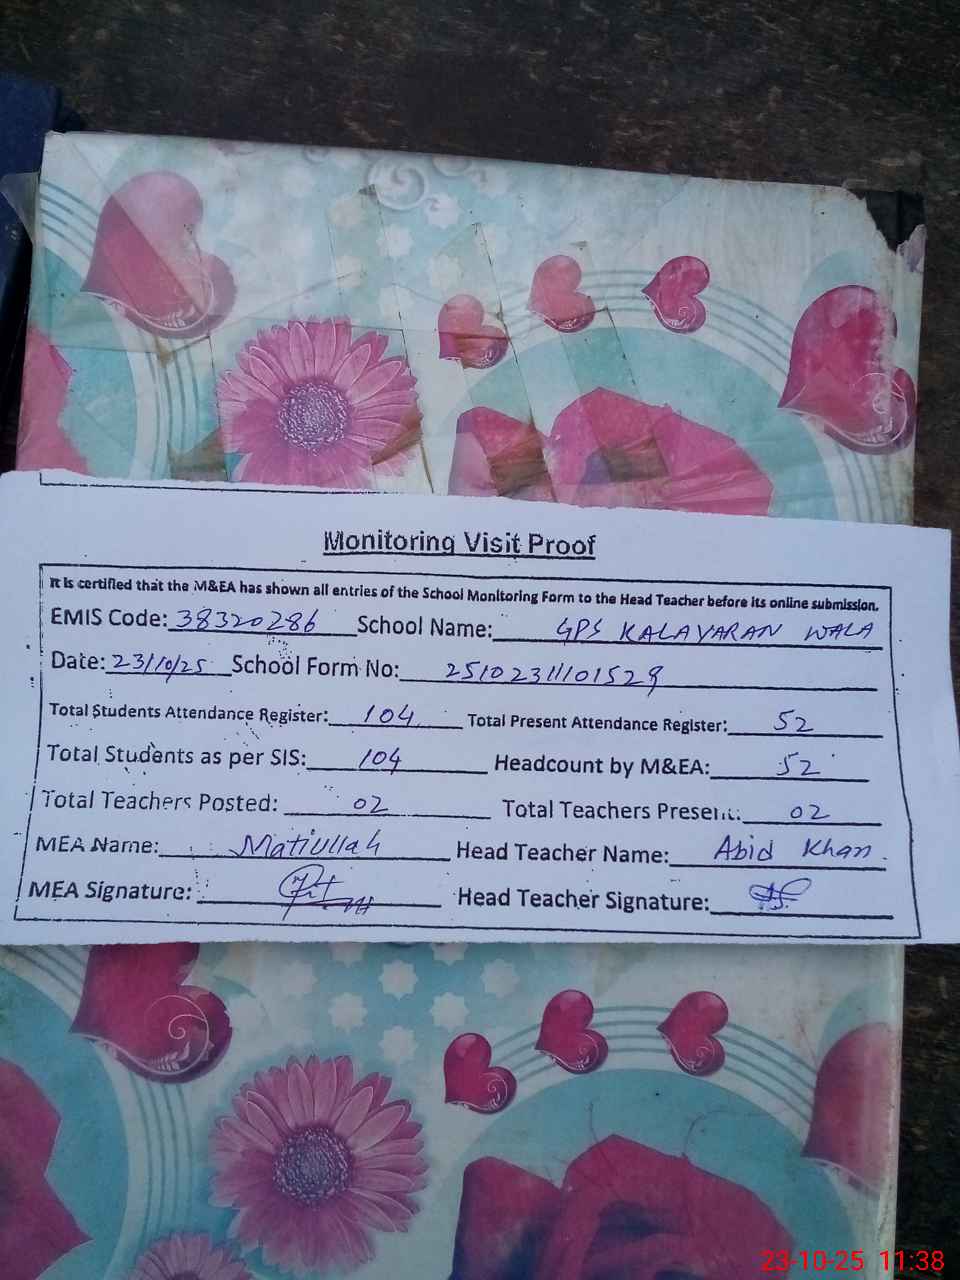 Monitoring Visit Proof
It is certified that the M&EA has shown all entries of the School Monitoring Form to the Head Teacher before its online submission.
EMIS Code: 38320286 School Name: GPS KALAYARAN WALA
Date: 23/10/25 School Form No: 2510231101529
Total Students Attendance Register: 104 Total Present Attendance Register: 52
Total Students as per SIS: 104 Headcount by M&EA: 52
Total Teachers Posted: 02 Total Teachers Present: 02
MEA Name: Matiullah Head Teacher Name: Abid Khan.
MEA Signature: Head Teacher Signature:
23-10-25 11:38